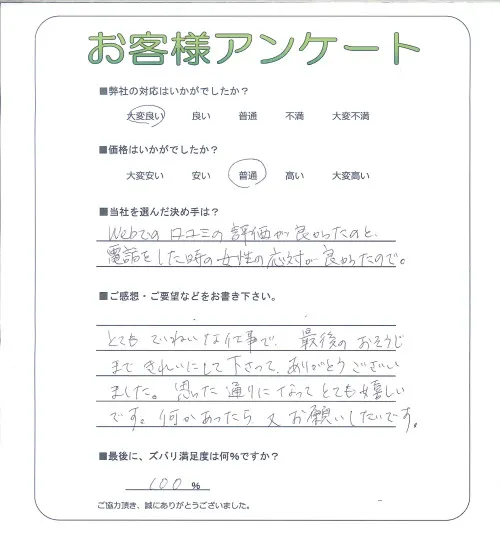 お客様アンケート
■弊社の対応はいかがでしたか？
大変良い 良い 普通 不満 大変不満
■価格はいかがでしたか？
大変安い 安い 普通 高い 大変高い
■当社を選んだ決め手は？
Webでの口コミの評価が良かったのと、
電話をした時の女性の応対が良かったので。
■ご感想・ご要望などをお書き下さい。
とてもていねいな仕事で、最後のおそうじ
まできれいにして下さって、ありがとうござい
ました。思った通りになってとても嬉しい
です。何かあったら又お願いしたいです。
■最後に、ズバリ満足度は何%ですか？
100 %
ご協力頂き、誠にありがとうございました。